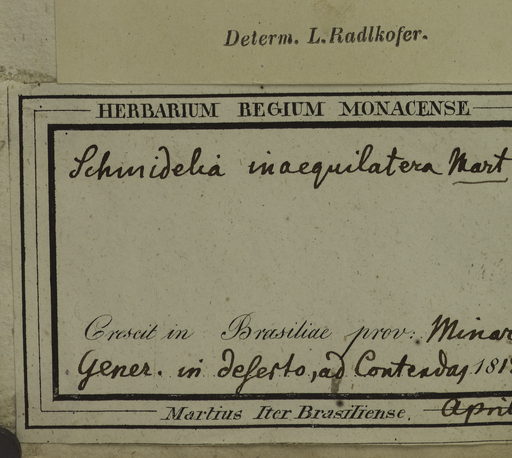 Determ. L. Radlkofer.
HERBARIUM REGIUM MONACENSE
Schmidelia inaequilatera Mart
Crescit in Brasiliae prov: Minar
Gener. in deserto, ad Contendas 181
Martius Iter Brasiliense. April